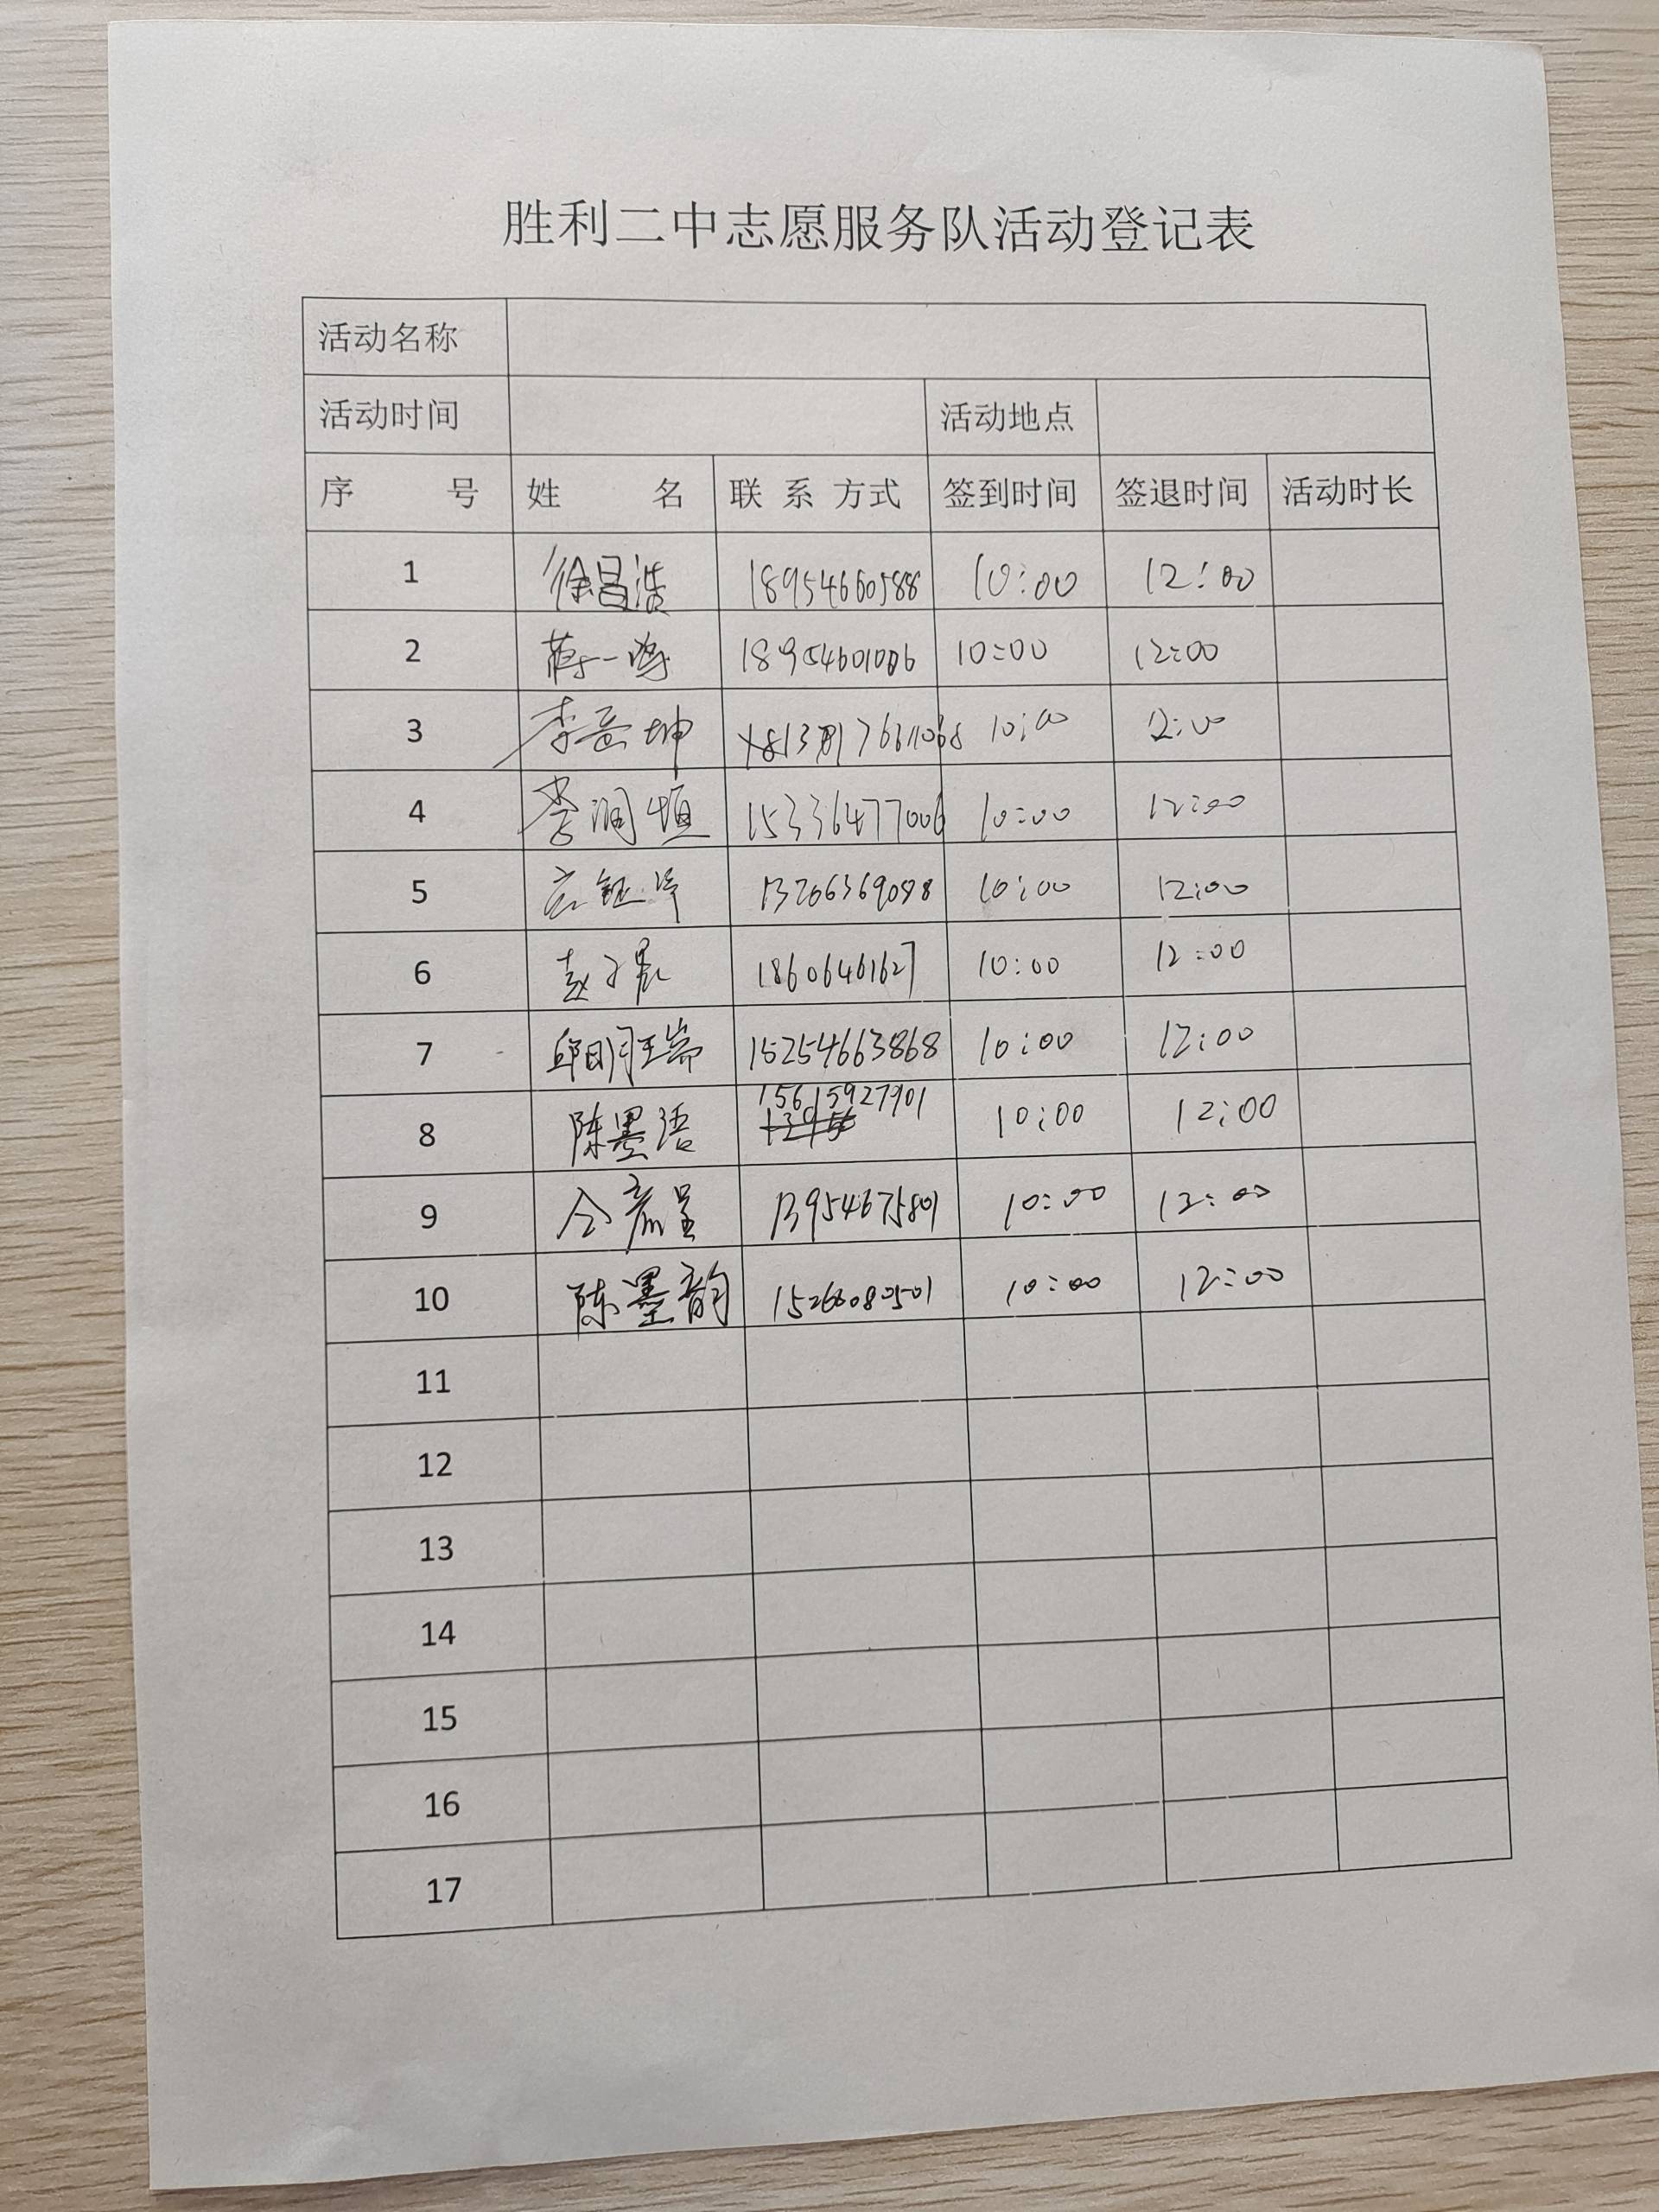 胜利二中志愿服务队活动登记表
活动名称
活动时间 活动地点
序 号 姓 名 联 系 方式 签到时间 签退时间 活动时长
1 徐昌浩 18954660588 10:00 12:00
2 蒋一鸣 18954601006 10:00 12:00
3 李 坤 10:00 12:00
4 李润恒 15336477006 10:00 12:00
5 13206369098 10:00 12:00
6 赵子 18606461627 10:00 12:00
7 邱玥瑞 15254663868 10:00 12:00
8 陈墨语 15615927901 10:00 12:00
9 13954675801 10:00 12:00
10 陈墨韵 10:00 12:00
11
12
13
14
15
16
17